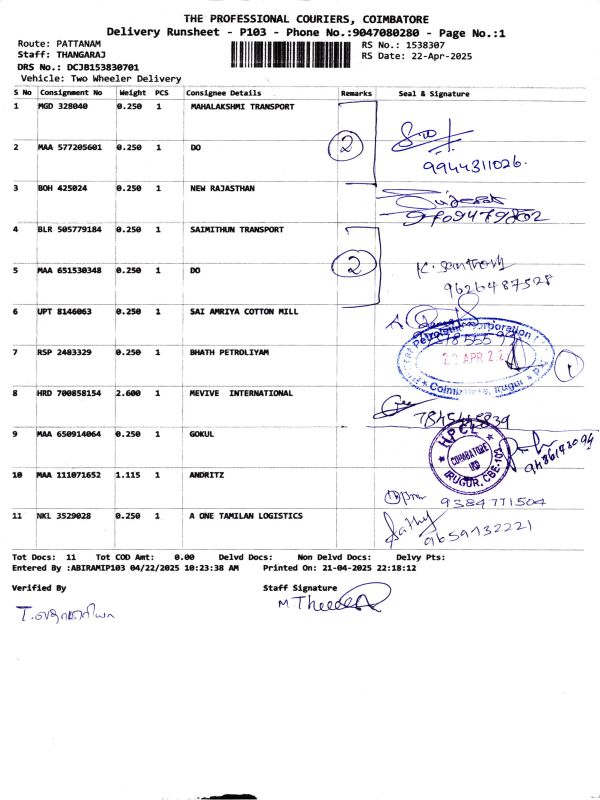 THE PROFESSIONAL COURIERS, COIMBATORE
Delivery Runsheet - P103 - Phone No.:9047080280 - Page No.:1
Route: PATTANAM
RS No.: 1538307
Staff: THANGARAJ
RS Date: 22-Apr-2025
DRS No.: DCJB153830701
Vehicle: Two Wheeler Delivery
S No Consignment No Weight PCS Consignee Details Remarks Seal & Signature
1 MGD 328040 0.250 1 MAHALAKSHMI TRANSPORT
2 MAA 577205601 0.250 1 DO 2
9944311026.
3 BOH 425024 0.250 1 NEW RAJASTHAN
9709479802
4 BLR 505779184 0.250 1 SAIMITHUN TRANSPORT
5 MAA 651530348 0.250 1 DO 2 K. Santhosh
9626487528
6 UPT 8146063 0.250 1 SAI AMRIYA COTTON MILL
7 RSP 2483329 0.250 1 BHATH PETROLIYAM
Petroleum Corporation
APR 2
Coimbatore, Irugur
8 HRD 700858154 2.600 1 MEVIVE INTERNATIONAL
9 MAA 650914064 0.250 1 GOKUL
H.P.C.L
COIMBATORE
IRD
IRUGUR, CBE-103
10 MAA 111071652 1.115 1 ANDRITZ
9384771504
11 NKL 3529028 0.250 1 A ONE TAMILAN LOGISTICS
Sathy
9659732221
Tot Docs: 11 Tot COD Amt: 0.00 Delvd Docs: Non Delvd Docs: Delvy Pts:
Entered By :ABIRAMIP103 04/22/2025 10:23:38 AM Printed On: 21-04-2025 22:18:12
Verified By Staff Signature